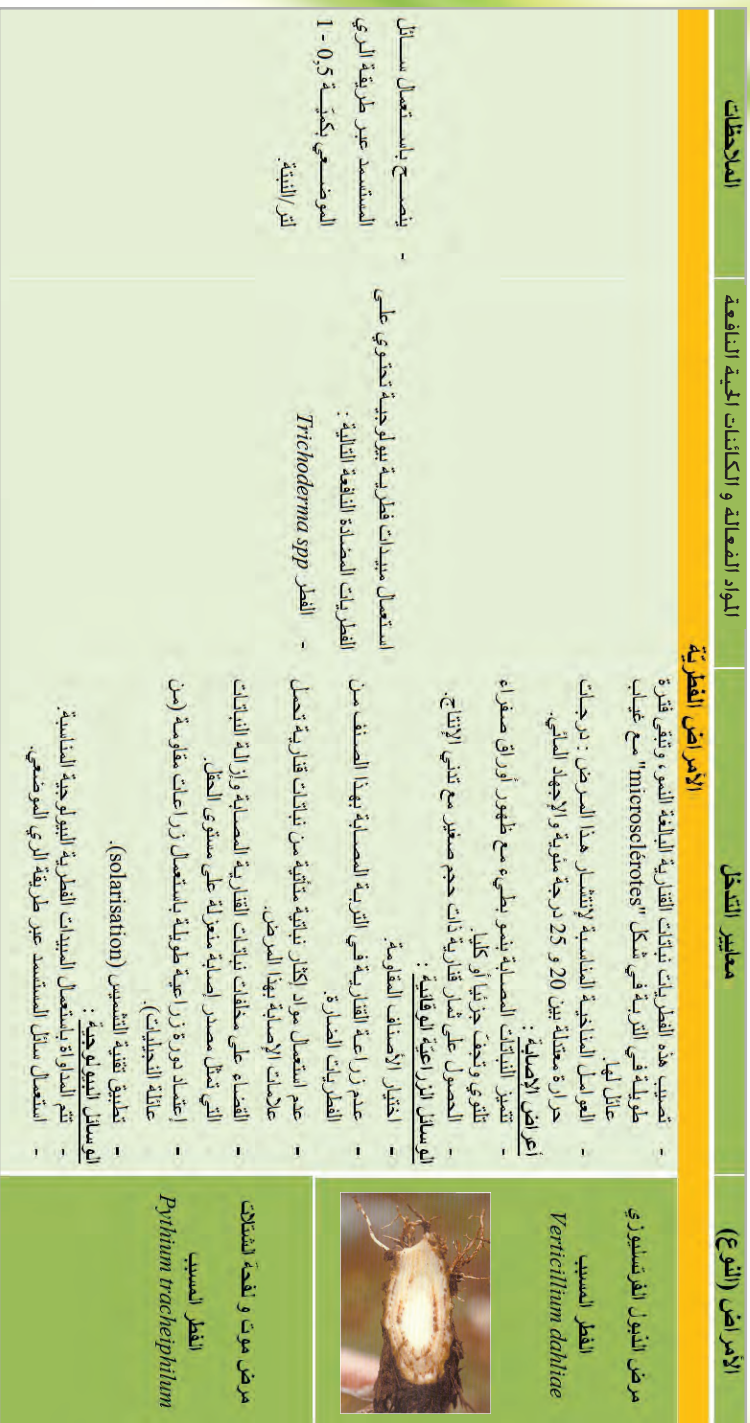 الأمراض (النوع)
معايير التدخل
المواد الفعالة و الكائنات الحية النافعة
الملاحظات
الأمراض الفطرية
مرض الذبول الفرتسليوزي
الفطر المسبب
Verticillium dahliae
- تصيب هذه الفطريات نباتات القنارية البالغة النمو، وتبقى فترة
طويلة في التربة في شكل "microsclérotes" مع غياب
عائل لها.
- العوامل المناخية المناسبة لإنتشار هذا المرض : درجات
حرارة معتدلة بين 20 و 25 درجة مئوية والإجهاد المائي.
أعراض الإصابة :
- تتميز النباتات المصابة بنمو بطيء مع ظهور أوراق صفراء
تلتوي وتجف جزئيا أو كليا.
- الحصول على ثمار قنارية ذات حجم صغير مع تدني الإنتاج.
الوسائل الزراعية الوقائية :
- اختيار الأصناف المقاومة.
- عدم زراعة القنارية في التربة المصابة بهذا الصنف من
الفطريات الضارة.
- عدم استعمال مواد إكثار نباتية متأتية من نباتات قنارية تحمل
علامات الإصابة بهذا المرض.
- القضاء على مخلفات نباتات القنارية المصابة وإزالة النباتات
التي تمثل مصدر إصابة منعزلة على مستوى الحقل.
- إعتماد دورة زراعية طويلة باستعمال زراعات مقاومة (من
عائلة النجيليات).
- تطبيق تقنية التشميس (solarisation).
الوسائل البيولوجية :
- تتم المداواة باستعمال المبيدات الفطرية البيولوجية المناسبة.
- استعمال سائل المستسمد عبر طريقة الري الموضعي.
استعمال مبيدات فطرية بيولوجية تحتوي على
الفطريات المضادة النافعة التالية :
- الفطر Trichoderma spp
- ينصح باستعمال سائل
المستسمد عبر طريقة الري
الموضعي بكمية 0,5 - 1
لتر/النبتة.
مرض موت و لفحة لشتلات
الفطر المسبب
Pythium tracheiphilum